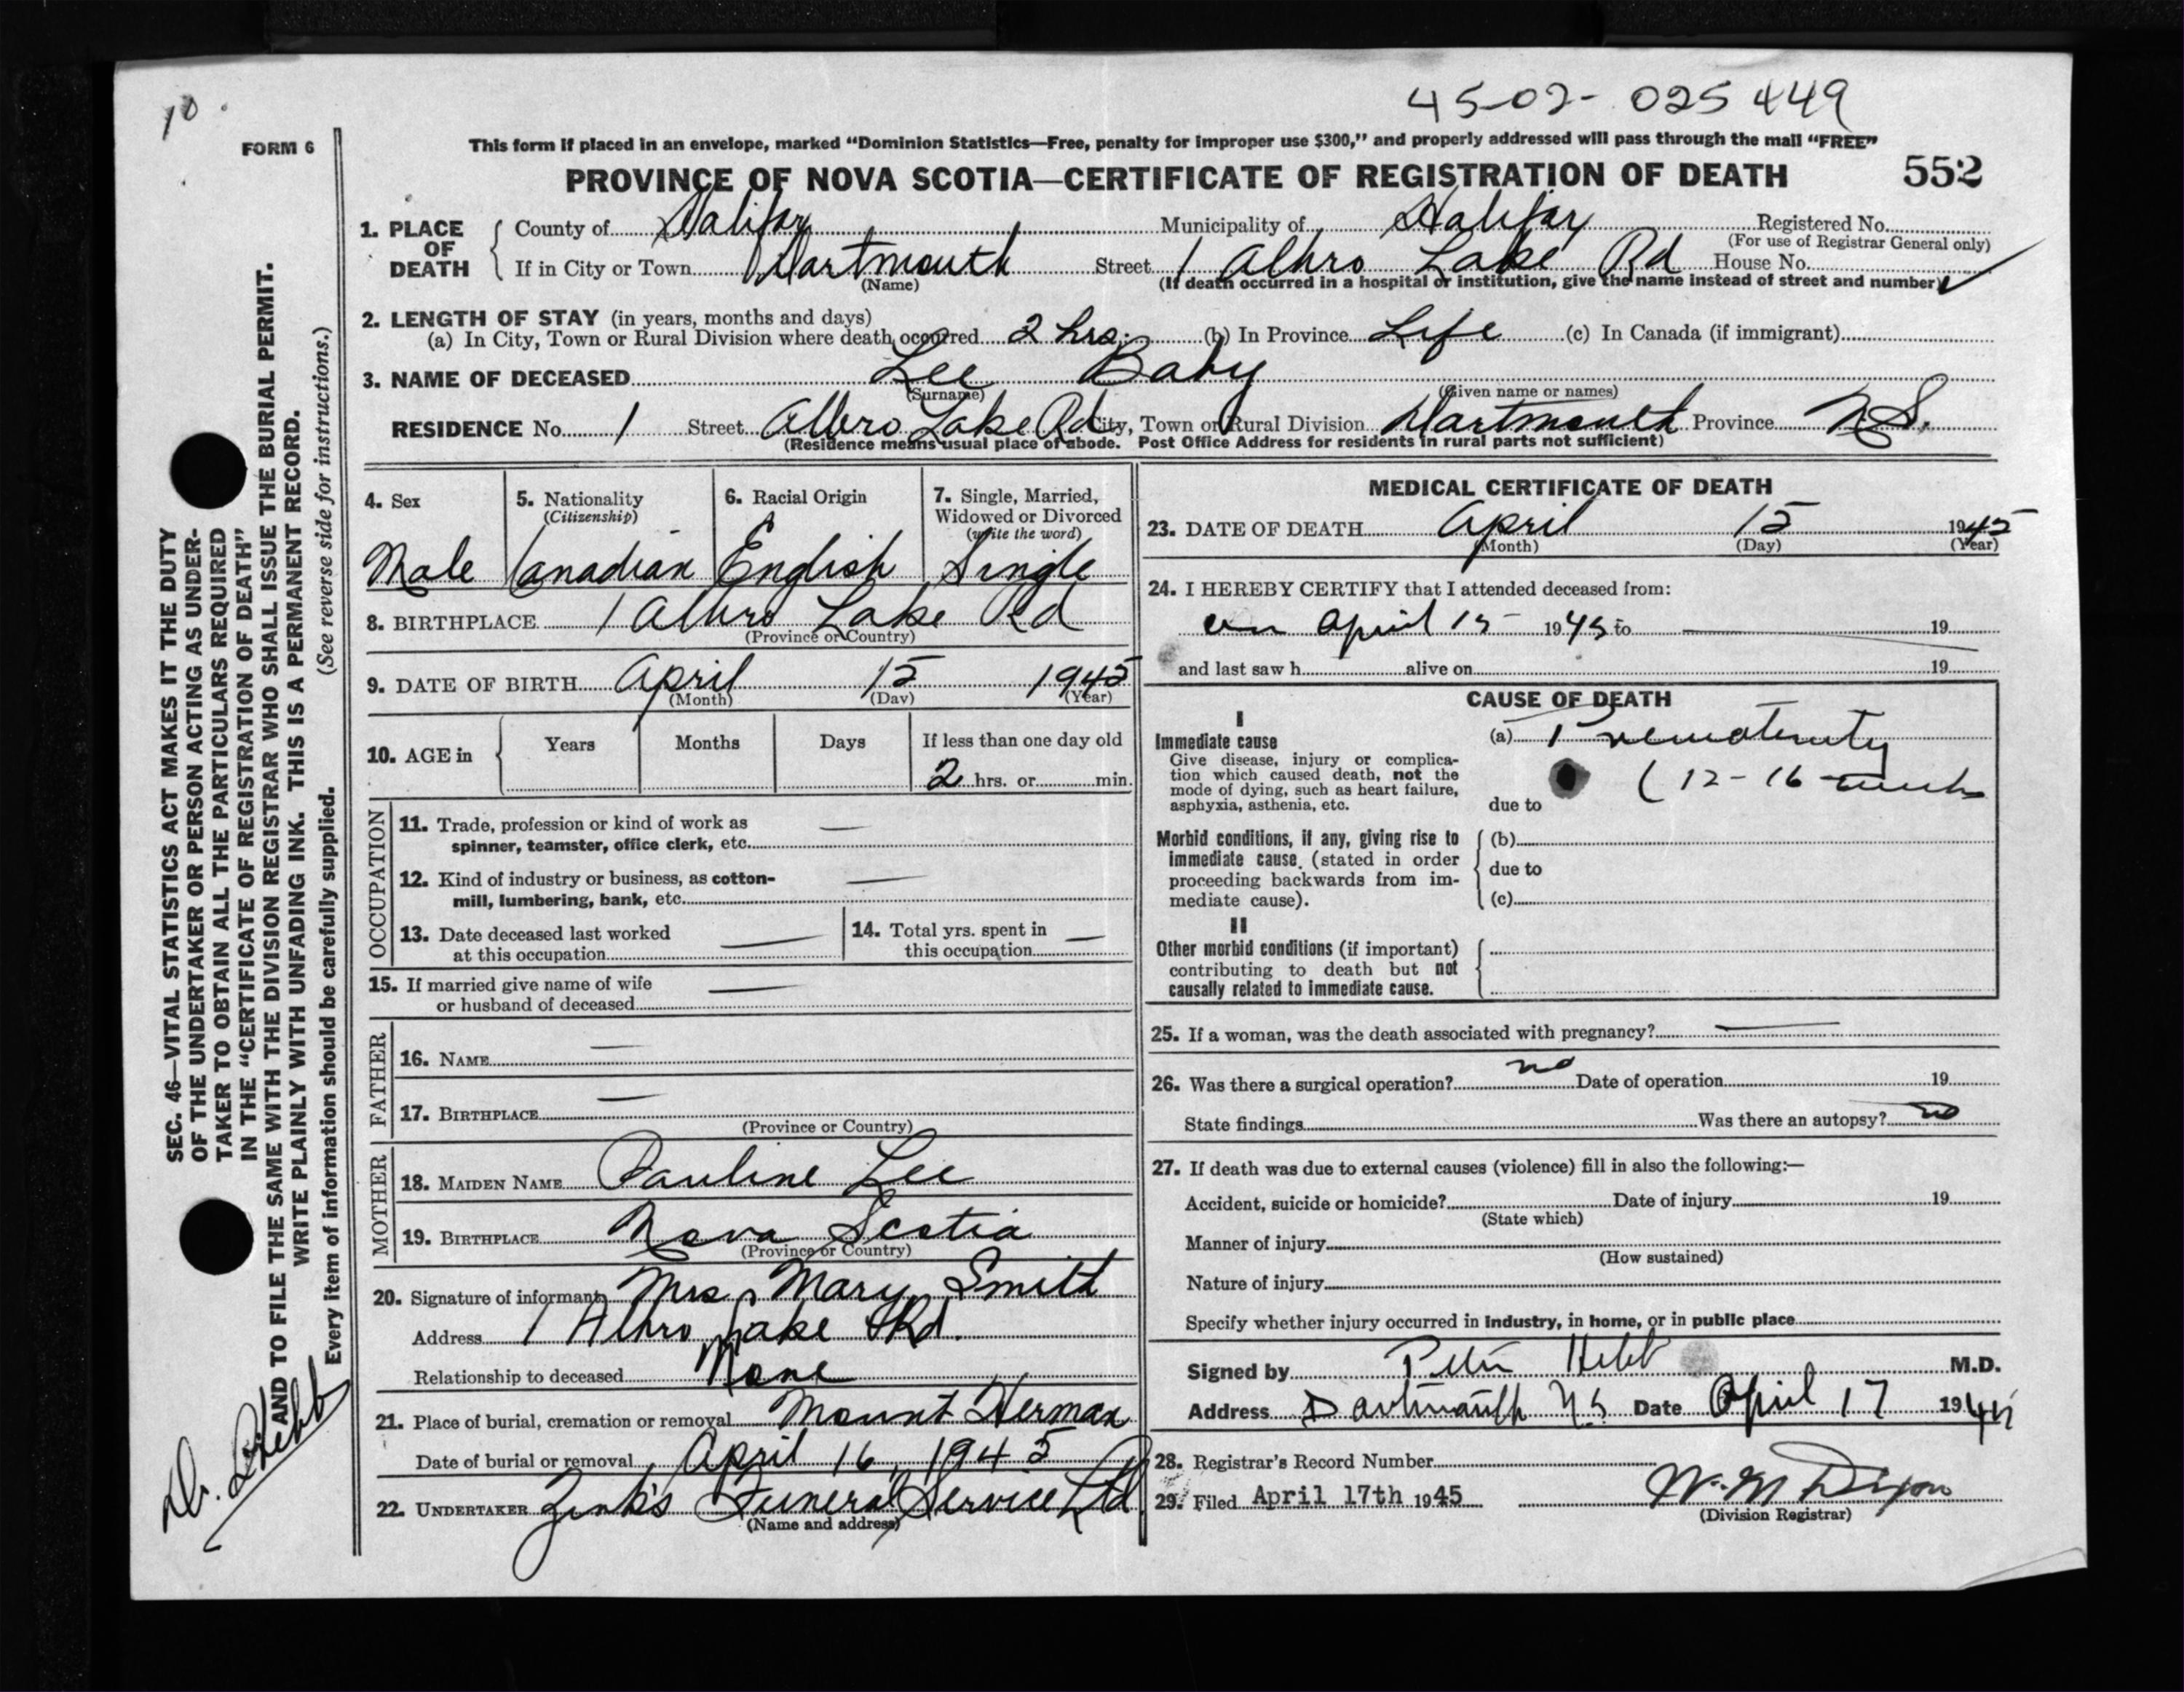 10.
45-02-025449
FORM 6
This form if placed in an envelope, marked “Dominion Statistics—Free, penalty for improper use $300,” and properly addressed will pass through the mail “FREE”
PROVINCE OF NOVA SCOTIA—CERTIFICATE OF REGISTRATION OF DEATH 552
1. PLACE OF DEATH County of Halifax Municipality of Halifax Registered No.
(For use of Registrar General only)
If in City or Town Dartmouth Street 1 Albro Lake Rd House No.
(Name) (If death occurred in a hospital or institution, give the name instead of street and number)
2. LENGTH OF STAY (in years, months and days)
(a) In City, Town or Rural Division where death occurred 2 hrs. (b) In Province Life (c) In Canada (if immigrant)
3. NAME OF DECEASED Lee Baby
(Surname) (Given name or names)
RESIDENCE No. 1 Street Albro Lake Rd City, Town or Rural Division Dartmouth Province N.S.
(Residence means usual place of abode. Post Office Address for residents in rural parts not sufficient)
4. Sex 5. Nationality (Citizenship) 6. Racial Origin 7. Single, Married, Widowed or Divorced (write the word)
Male Canadian English Single
8. BIRTHPLACE 1 Albro Lake Rd
(Province or Country)
9. DATE OF BIRTH April 15 1945
(Month) (Day) (Year)
10. AGE in Years Months Days If less than one day old
2 hrs. or min.
OCCUPATION
11. Trade, profession or kind of work as
spinner, teamster, office clerk, etc. —
12. Kind of industry or business, as cotton-
mill, lumbering, bank, etc. —
13. Date deceased last worked
at this occupation —
14. Total yrs. spent in
this occupation —
15. If married give name of wife
or husband of deceased —
FATHER
16. NAME —
17. BIRTHPLACE —
(Province or Country)
MOTHER
18. MAIDEN NAME Pauline Lee
19. BIRTHPLACE Nova Scotia
(Province or Country)
20. Signature of informant Mrs Mary Smith
Address 1 Albro Lake Rd.
Relationship to deceased None
21. Place of burial, cremation or removal Mount Herman
Date of burial or removal April 16, 1945
22. UNDERTAKER Zink's Funeral Service Ltd
(Name and address)
MEDICAL CERTIFICATE OF DEATH
23. DATE OF DEATH April 15 1945
(Month) (Day) (Year)
24. I HEREBY CERTIFY that I attended deceased from:
on April 15 1945 to — 19
and last saw h alive on 19
CAUSE OF DEATH
I
Immediate cause
Give disease, injury or complica-
tion which caused death, not the
mode of dying, such as heart failure,
asphyxia, asthenia, etc.
(a) Prematurity
(12-16 weeks
due to
Morbid conditions, if any, giving rise to
immediate cause (stated in order
proceeding backwards from im-
mediate cause).
(b)
due to
(c)
II
Other morbid conditions (if important)
contributing to death but not
causally related to immediate cause.
25. If a woman, was the death associated with pregnancy? —
26. Was there a surgical operation? no Date of operation 19
State findings Was there an autopsy? no
27. If death was due to external causes (violence) fill in also the following:—
Accident, suicide or homicide? Date of injury 19
(State which)
Manner of injury
(How sustained)
Nature of injury
Specify whether injury occurred in industry, in home, or in public place
Signed by Peter Hebb M.D.
Address Dartmouth N S Date April 17 1945
28. Registrar's Record Number
29. Filed April 17th 1945 W. M Dixon
(Division Registrar)
SEC. 46—VITAL STATISTICS ACT MAKES IT THE DUTY
OF THE UNDERTAKER OR PERSON ACTING AS UNDER-
TAKER TO OBTAIN ALL THE PARTICULARS REQUIRED
IN THE “CERTIFICATE OF REGISTRATION OF DEATH”
AND TO FILE THE SAME WITH THE DIVISION REGISTRAR WHO SHALL ISSUE THE BURIAL PERMIT.
WRITE PLAINLY WITH UNFADING INK. THIS IS A PERMANENT RECORD.
Every item of information should be carefully supplied. (See reverse side for instructions.)
Dr. Hebb